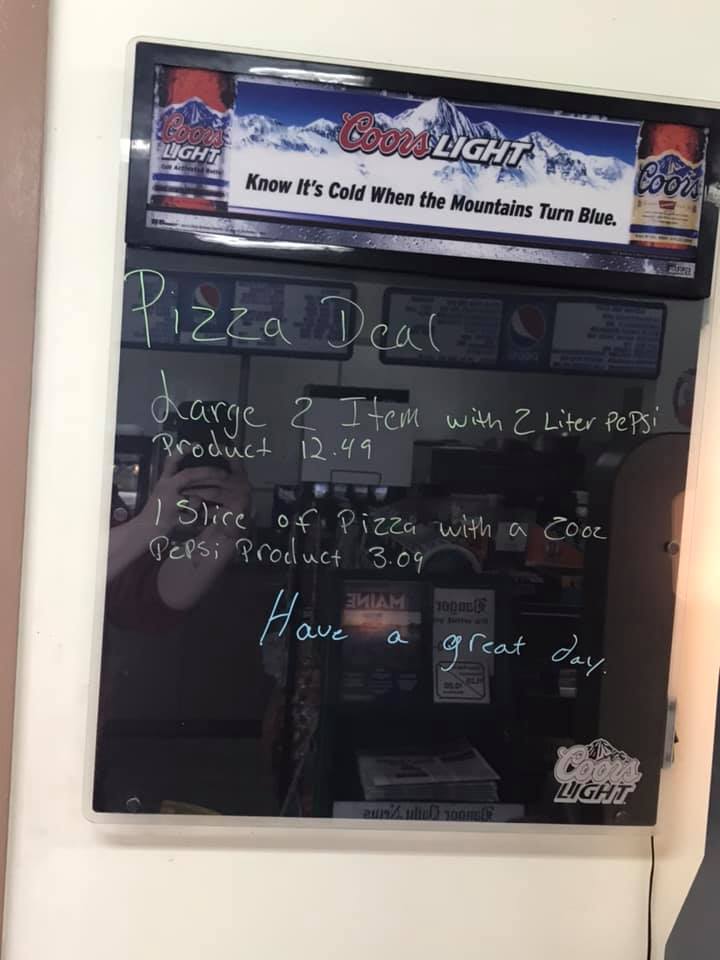 Coors LIGHT
Coors LIGHT
Coors
Know It's Cold When the Mountains Turn Blue.
Pizza Deal
Large 2 Item with 2 Liter PePsi
Product 12.49
1 Slice of Pizza with a 20oz
PePsi Product 3.09
Have a great day.
MAINE
Bangor
Coors LIGHT
Bangor Daily News